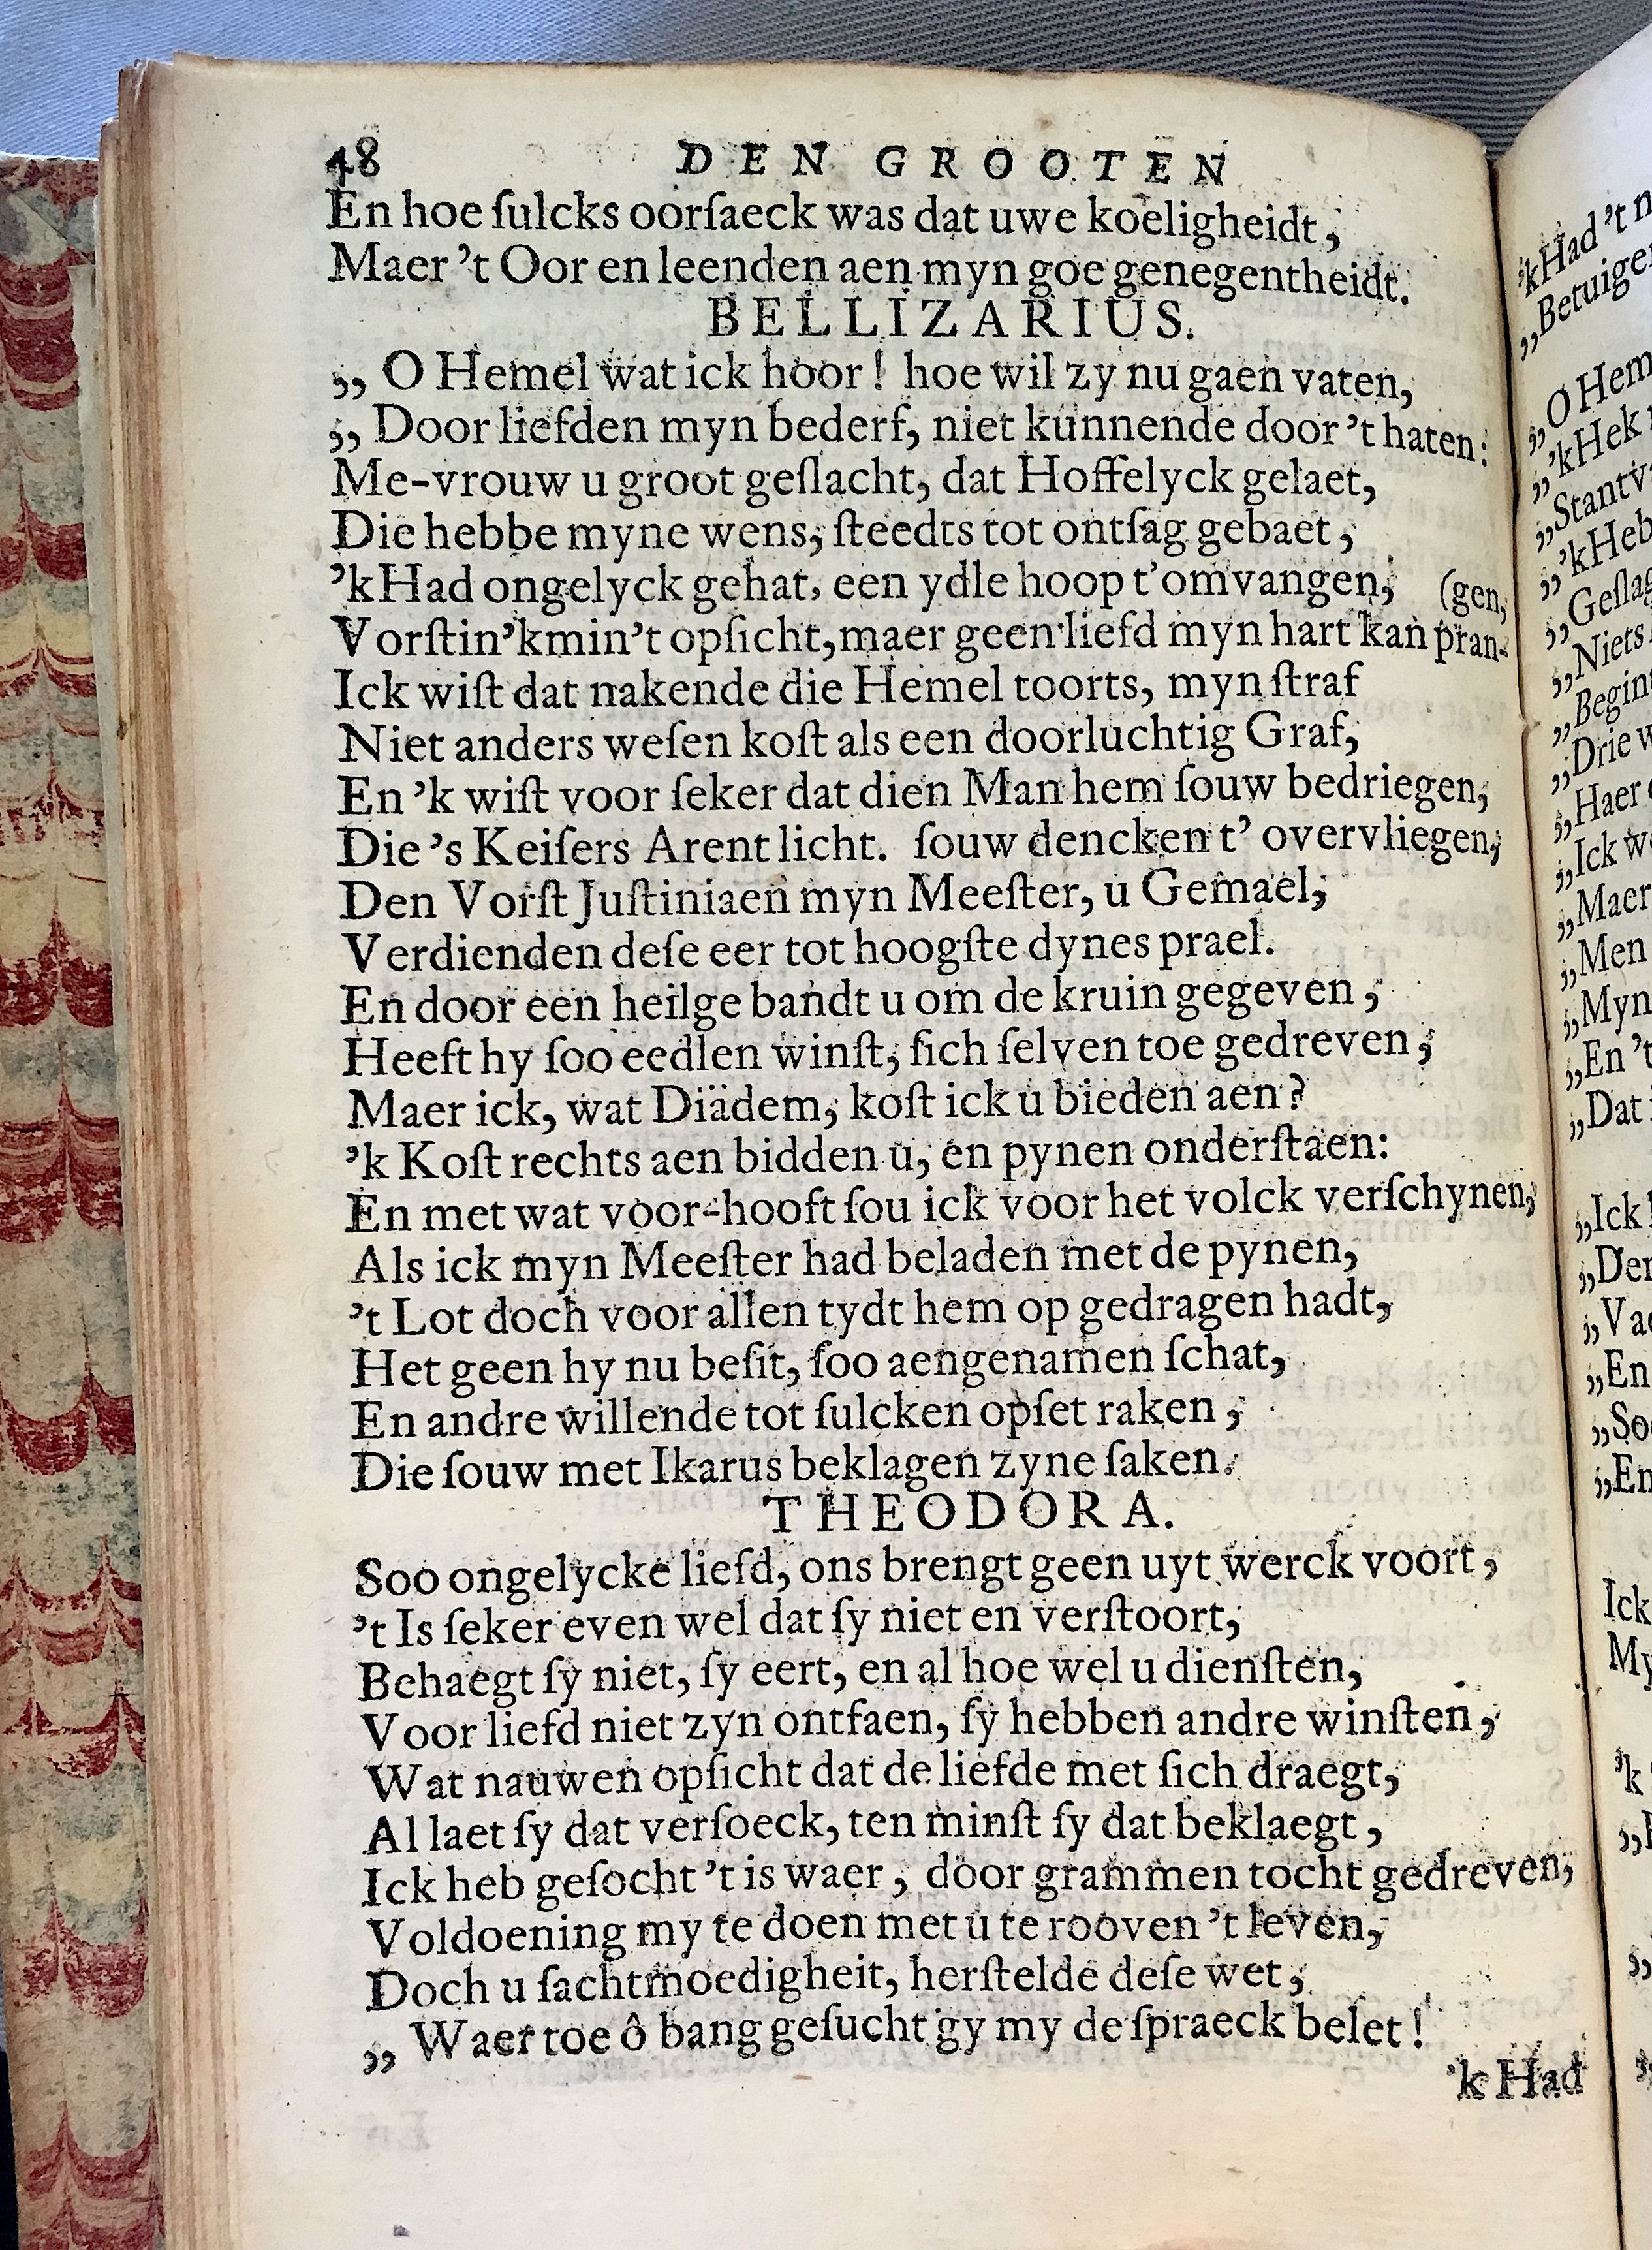 48 DEN GROOTEN
En hoe ſulcks oorſaeck was dat uwe koeligheidt,
Maer 't Oor en leenden aen myn goe genegentheidt.
BELLIZARIUS.
,, O Hemel wat ick hoor! hoe wil zy nu gaen vaten,
,, Door liefden myn bederf, niet kunnende door 't haten:
Me-vrouw u groot geſlacht, dat Hoffelyck gelaet,
Die hebbe myne wens, ſteedts tot ontſag gebaet,
'k Had ongelyck gehat, een ydle hoop t'omvangen, (gen,
Vorſtin 'k min 't opſicht, maer geen liefd myn hart kan pran-
Ick wiſt dat nakende die Hemel toorts, myn ſtraf
Niet anders weſen koſt als een doorluchtig Graf,
En 'k wiſt voor ſeker dat dien Man hem ſouw bedriegen,
Die 's Keiſers Arent licht. ſouw dencken t' overvliegen,
Den Vorſt Juſtiniaen myn Meeſter, u Gemael,
Verdienden deſe eer tot hoogſte dynes prael.
En door een heilge bandt u om de kruin gegeven,
Heeft hy ſoo eedlen winſt, ſich ſelven toe gedreven,
Maer ick, wat Diädem, koſt ick u bieden aen?
'k Koſt rechts aen bidden u, en pynen onderſtaen:
En met wat voor-hooft ſou ick voor het volck verſchynen,
Als ick myn Meeſter had beladen met de pynen,
't Lot doch voor allen tydt hem op gedragen hadt,
Het geen hy nu beſit, ſoo aengenamen ſchat,
En andre willende tot ſulcken opſet raken,
Die ſouw met Ikarus beklagen zyne ſaken.
THEODORA.
Soo ongelycke liefd, ons brengt geen uyt werck voort,
't Is ſeker even wel dat ſy niet en verſtoort,
Behaegt ſy niet, ſy eert, en al hoe wel u dienſten,
Voor liefd niet zyn ontfaen, ſy hebben andre winſten,
Wat nauwen opſicht dat de liefde met ſich draegt,
Al laet ſy dat verſoeck, ten minſt ſy dat beklaegt,
Ick heb geſocht 't is waer, door grammen tocht gedreven,
Voldoening my te doen met u te rooven 't leven,
Doch u ſachtmoedigheit, herſtelde deſe wet,
,, Waer toe ô bang geſucht gy my de ſpraeck belet!
'k Had
'k Had 't
,, Betuige
,, O Hem
,, 'k Hek
,, Stantv
,, 'k Heb
,, Geſlag
,, Niets
,, Begin
,, Drie
,, Haer
,, Ick
,, Maer
,, Men
,, Myn
,, En 't
,, Dat
,, Ick
,, Der
,, Vae
,, En
,, Soo
,, En
Ick
My
'k